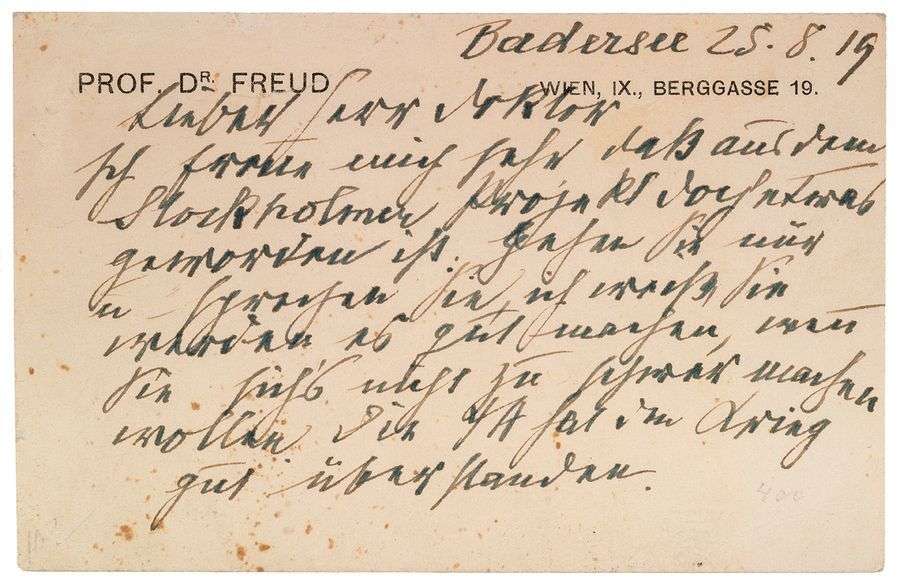 Badersee 25. 8. 19
PROF. DR. FREUD WIEN, IX., BERGGASSE 19.
Lieber Herr Doktor
Ich freue mich sehr daß aus dem
Stockholmer Projekt doch etwas
geworden ist. Gehen Sie nur
u sprechen Sie, ich weiß, Sie
werden es gut machen, wenn
Sie sich's nicht zu schwer machen
wollen Die ΨΑ hat den Krieg
gut überstanden.
400